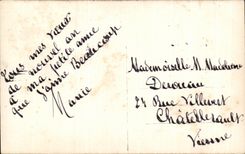 Tous mes vœux
de nouvel an
ma petite amie
que j'aime Beaucoup
Marie
Mademoiselle M. Madeleine
Devoreau
24 Rue Villevert
Châtellerault
Vienne